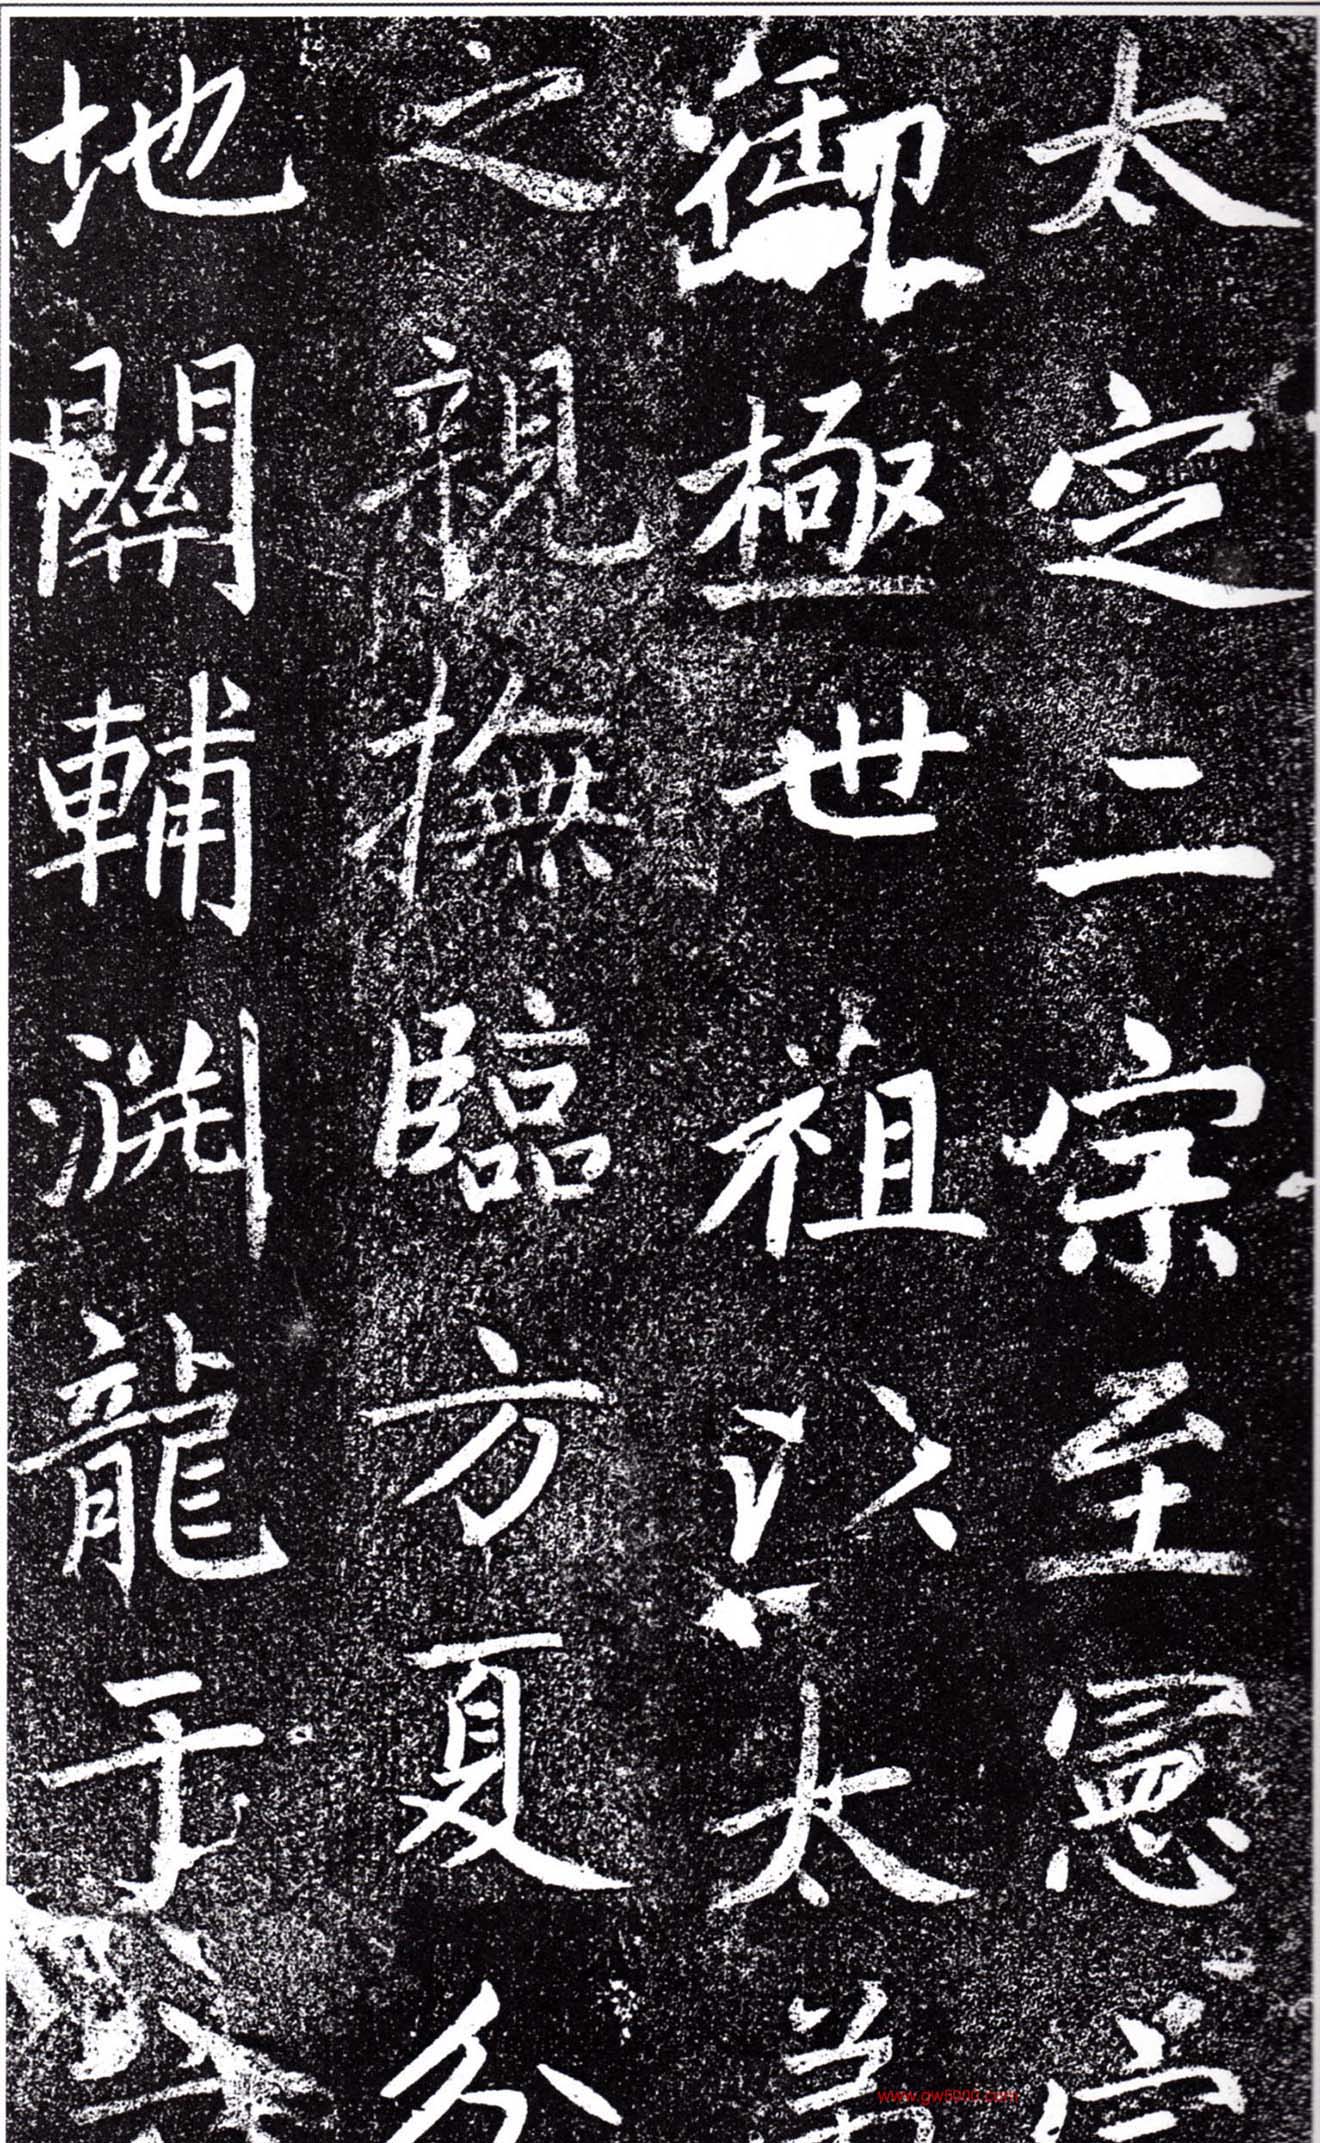 太定二宗至憲宗
御極世祖以太弟
之親撫臨方夏分
地關輔淵龍于
www.gw5000.com